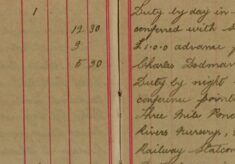 1
12 30
9
5 30
Duty by day in
conferred with
£1.0.0 advance
Charles Dodman
Duty by night
conference point
Three Mile
Rivers Nursery,
Railway Station